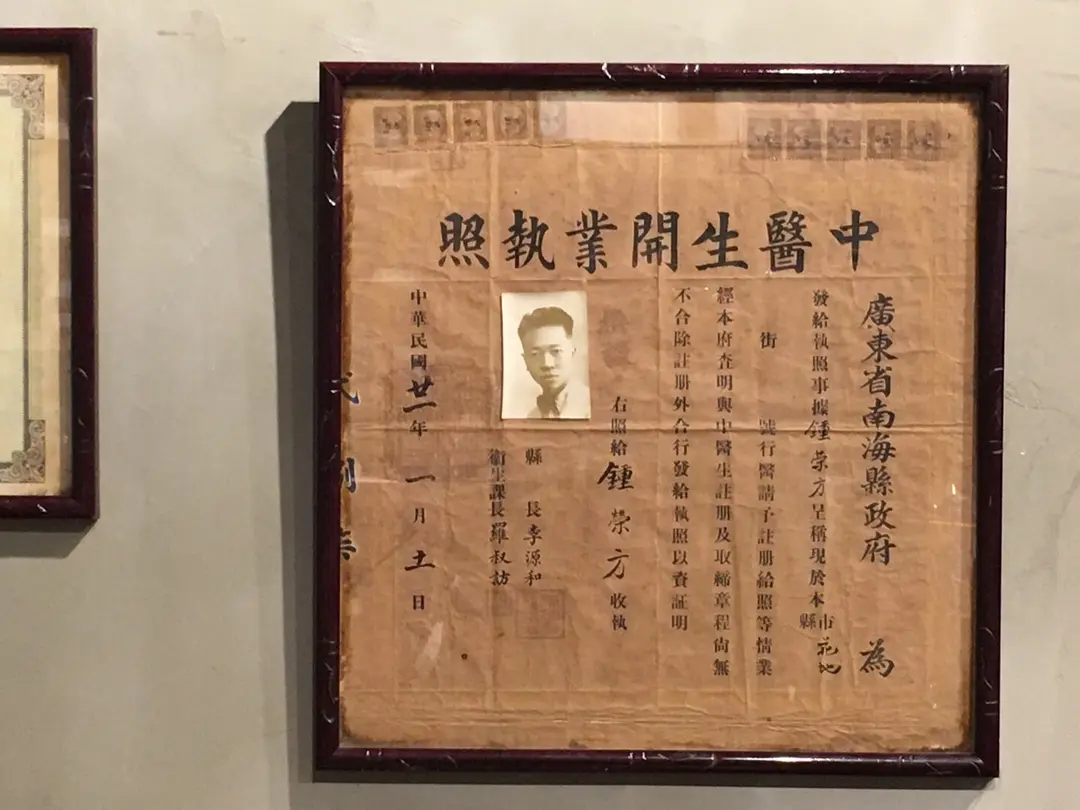 中醫生開業執照
廣東省南海縣政府 為
發給執照事據鍾荣方呈稱現於本市縣花地
街 號行醫請予註册給照等情業
經本府查明與中醫生註册及取締章程尚無
不合除註册外合行發給執照以資証明
右照給鍾荣方收執
縣長李源和
衛生課長羅叔訪
中華民國廿一年一月十一日